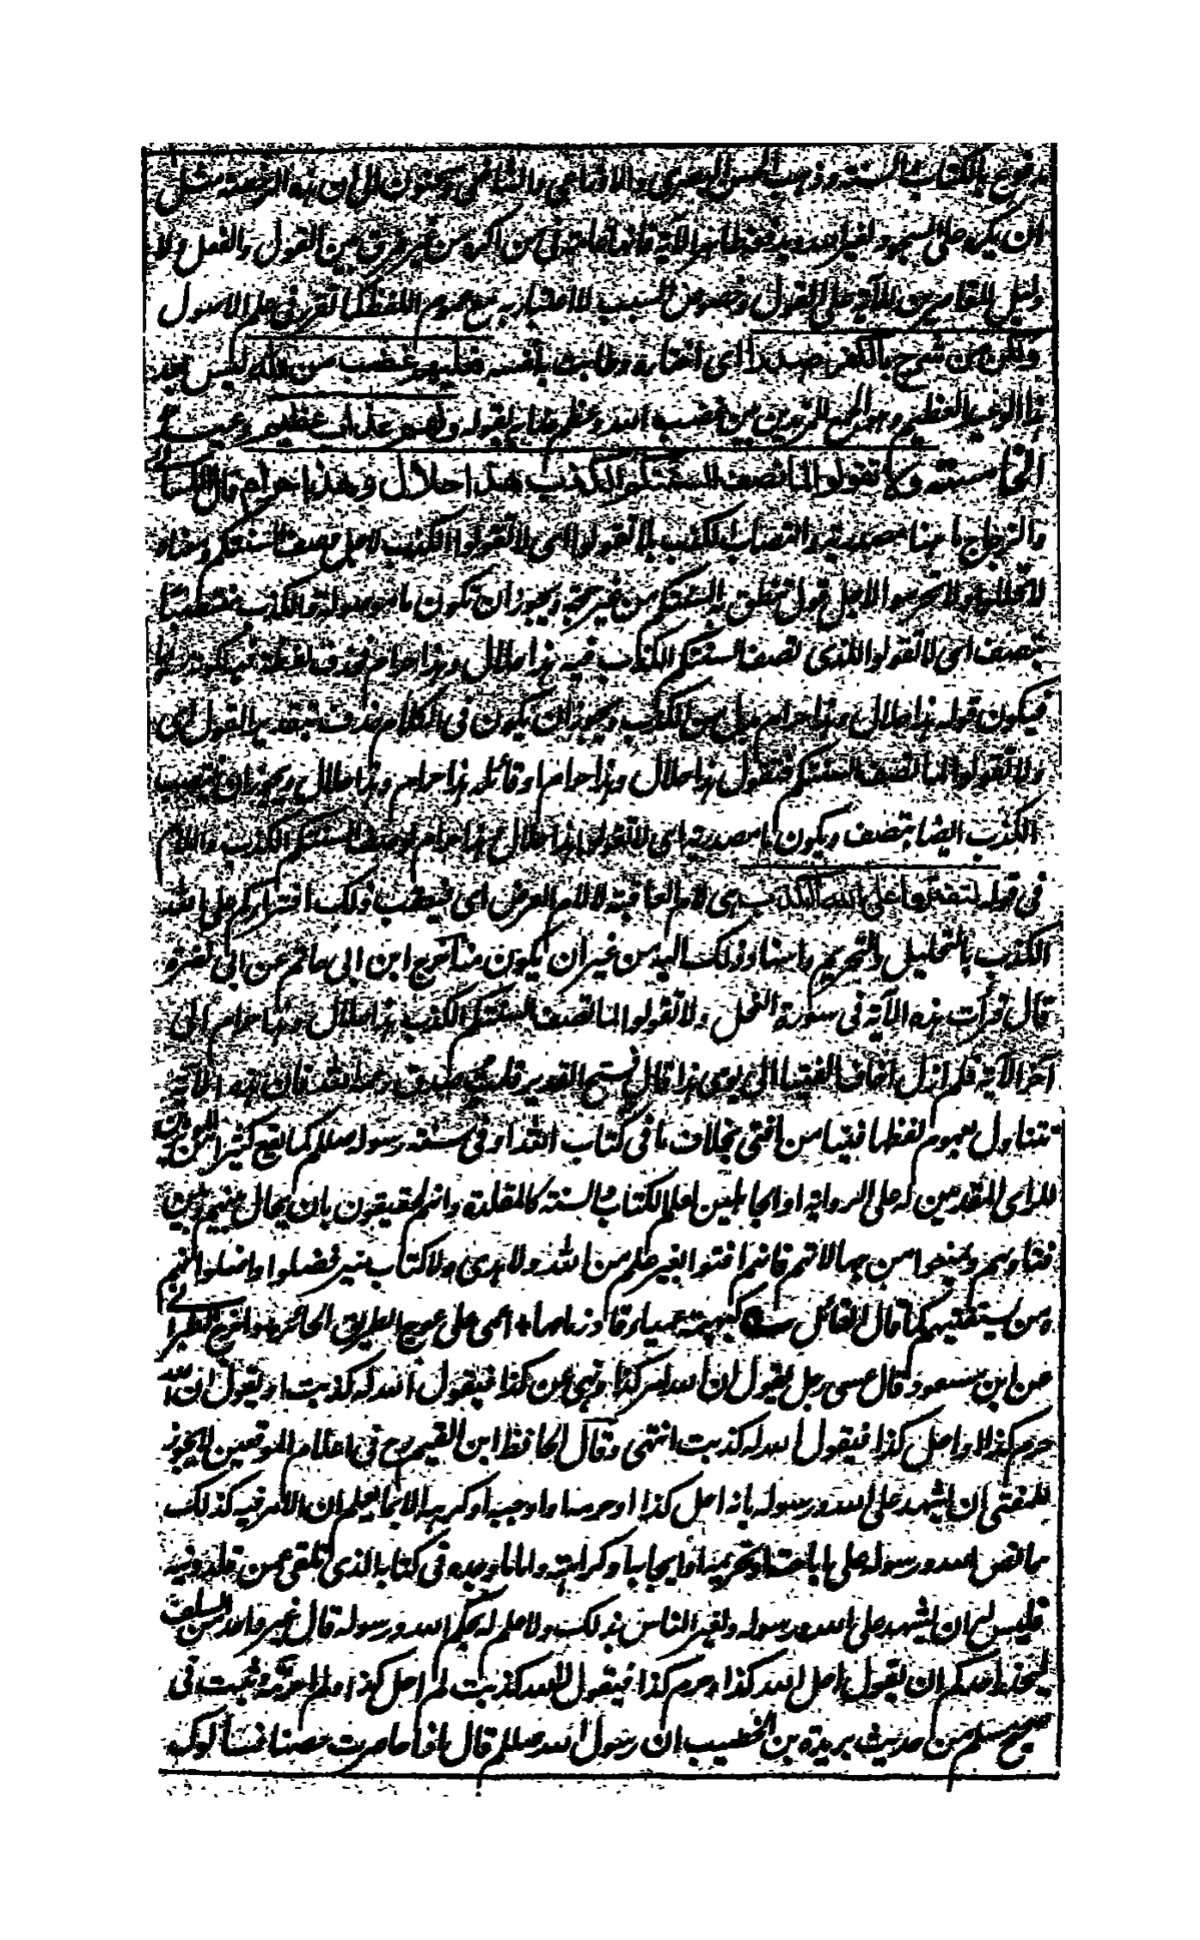 مدفوع بالكتاب والسنة وذهب الحسن البصري والاوزاعي والشافعي وسحنون الى ان هذه الرخصة مثل
ان يكره على السجود لغير الله ويدفعه ظاهر الآية فانها عامة في من اكره من غير فرق بين القول والفعل ولا
دليل للقاصرين للآية على القول وخصوص السبب لا اعتبار به مع عموم اللفظ كما تقرر في علم الاصول
ولكن من شرح بالكفر صدرا اى اختاره وطابت به نفسه فعليهم غضب من الله ليس بعد
هذا الوعيد العظيم وهو الجمع للمرتدين بين غضب الله وعظم عذابه لقوله ولهم عذاب عظيم
الخامسة ولا تقولوا لما تصف السنتكم الكذب هذا حلال وهذا حرام قال الكسائي
والزجاج ما هنا مصدرية وانتصاب الكذب بلا تقولوا اى لا تقولوا الكذب لاجل وصف السنتكم ومعناه
لا تحللوا ولا تحرموا لاجل قول تنطق به السنتكم من غير حجة ويجوز ان تكون ما موصولة والكذب منتصبا
بتصف اى لا تقولوا للذى تصف السنتكم الكذب فيه هذا حلال وهذا حرام فحذف لفظة فيه
فيكون قوله هذا حلال وهذا حرام بدل من الكذب ويجوز ان يكون في الكلام حذف بتقدير القول اى
ولا تقولوا لما تصف السنتكم فتقول هذا حلال وهذا حرام او قائلة هذا حرام وهذا حلال ويجوز ان ينتصب
الكذب ايضا بتصف ويكون ما مصدرية اى لا تقولوا هذا حلال وهذا حرام لوصف السنتكم الكذب واللام
في قوله لتفتروا على الله الكذب هى لام العاقبة لا لام العرض اى فيتعقب ذلك افتراؤكم على الله
الكذب بالتحليل والتحريم واسناد ذلك اليه من غير ان يكون منه اخرج ابن ابى حاتم عن ابى نضرة
قال قرأت هذه الآية في سورة النحل ولا تقولوا لما تصف السنتكم الكذب هذا حلال وهذا حرام الى
آخر الآية فلم ازل اخاف الفتيا الى يومى هذا قال في فتح القدير قلت صدق رحمه الله فان هذه الآية
تتناول بعموم لفظها فتيا من افتى بخلاف ما في كتاب الله او في سنة رسوله صلعم كما يقع كثيرا من المؤثرين
للراى المقدمين له على الرواية او الجاهلين لعلم الكتاب والسنة كالمقلدة وانهم لحقيقون بان يحال بينهم وبين
فتاويهم ويمنعوا من جهالاتهم فانهم افتوا بغير علم من الله ولا هدى ولا كتاب منير فضلوا واضلوا فهم
ومن يستفتيهم كما قال القائل كبهيمة عمياء قاد زمامها اعمى على عوج الطريق الحائر واخرج الطبرانى
عن ابن مسعود قال عسى رجل يقول ان الله امر كذا ونهى عن كذا فيقول الله له كذبت او يقول ان الله
حرم كذا او احل كذا فيقول الله له كذبت انتهى وقال الحافظ ابن القيم رح في اعلام الموقعين لا يجوز
للمفتى ان يشهد على الله ورسوله بانه احل كذا او حرمه او اوجبه او كرهه الا لما يعلم ان الامر فيه كذلك
مما نص الله ورسوله على اباحته او تحريمه او ايجابه او كراهته واما ما وجده في كتابه الذى تلقى عمن قلده دينه
فليس له ان يشهد على الله ورسوله ويغر الناس بذلك ولا علم له بحكم الله ورسوله قال غير واحد من السلف
ليحذر احدكم ان يقول احل الله كذا وحرم كذا فيقول الله كذبت لم احل كذا ولم احرمه وثبت في
صحيح مسلم من حديث بريدة بن الخصيب ان رسول الله صلعم قال اذا حاصرت حصنا فسألوك